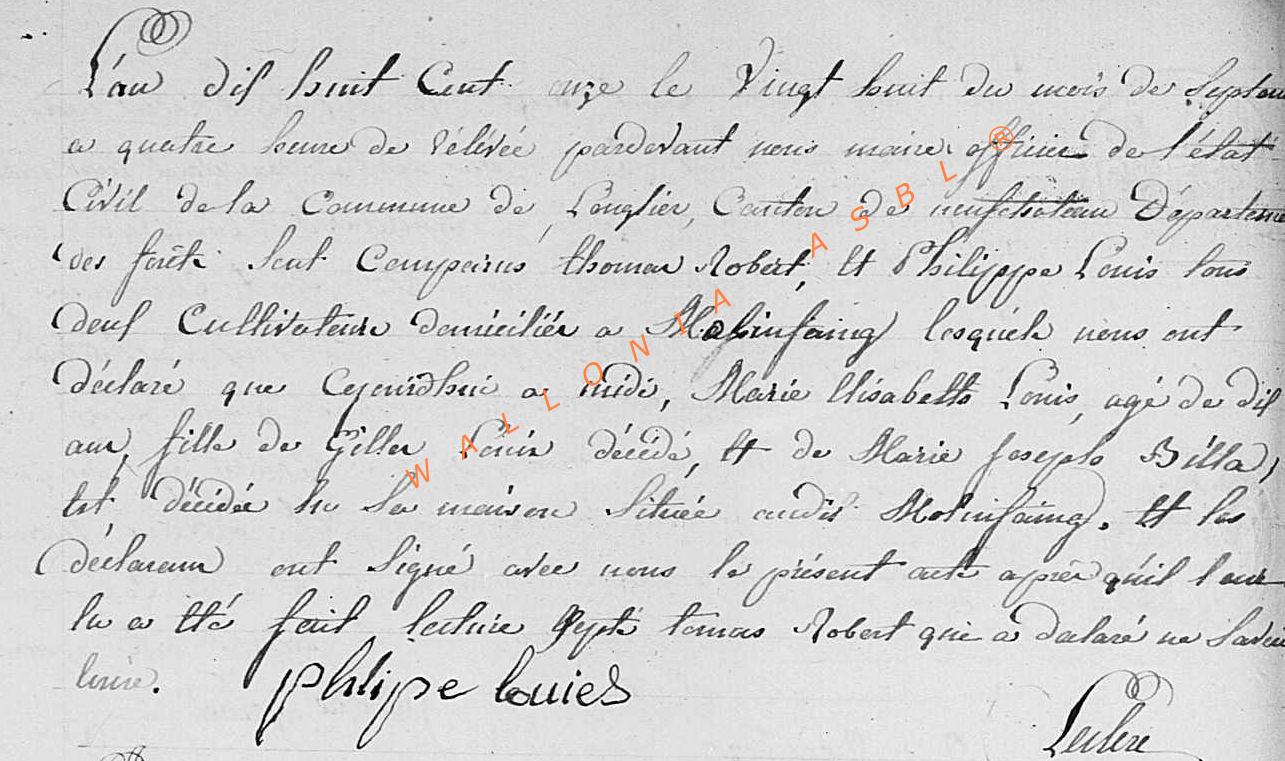 L'an dix huit Cent onze le Vingt huit du mois de Septem
a quatre heure de rélévée pardevant nous maire officier de l'état
Civil de la Commune de Longlier, Canton de neufchateau Départeme
des forêts Sont Comparus thomas Robert, Et Philippe Louis tous
deux Cultivateurs domiciliés a Molinfaing lesquels nous ont
déclaré que Cejourdhui a midi, Marie Elisabeth Louis, agé de dix
ans, fille de Gilles Louis décédé, Et de Marie Joseph Billa,
Est décédée En Sa maison Située audit Molinfaing. Et les
déclarans ont Signé avec nous le présent acte après qu'il leur
En a Eté fait lecture Septé tomas Robert qui a declaré ne Savoir
Ecrire. philipe louies
Leclere
WALLONIA ASBL ®